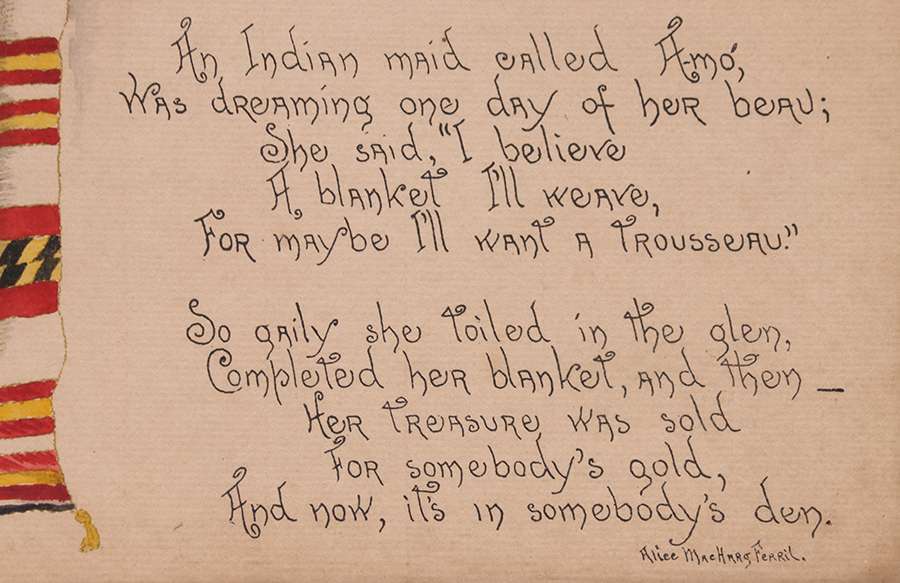 An Indian maid called A-mó,
Was dreaming one day of her beau;
She said, "I believe
A blanket I'll weave,
For maybe I'll want a trousseau."
So gaily she toiled in the glen,
Completed her blanket, and then —
Her treasure was sold
For somebody's gold,
And now, it's in somebody's den.
Alice MacHarg Ferril.